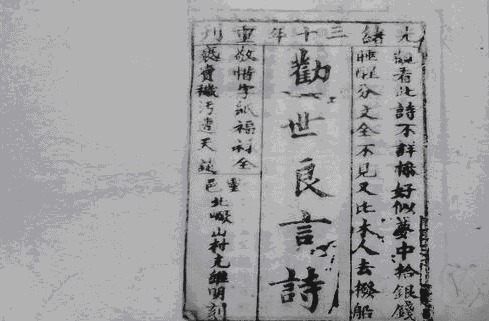 光緒三十年重刊
看此詩不詳 好似夢中拾銀錢
睡醒分文全不見又比木人去撥船
勸世良言詩
敬惜字紙福祿全
穢污遭天
邑北 山村 明刻